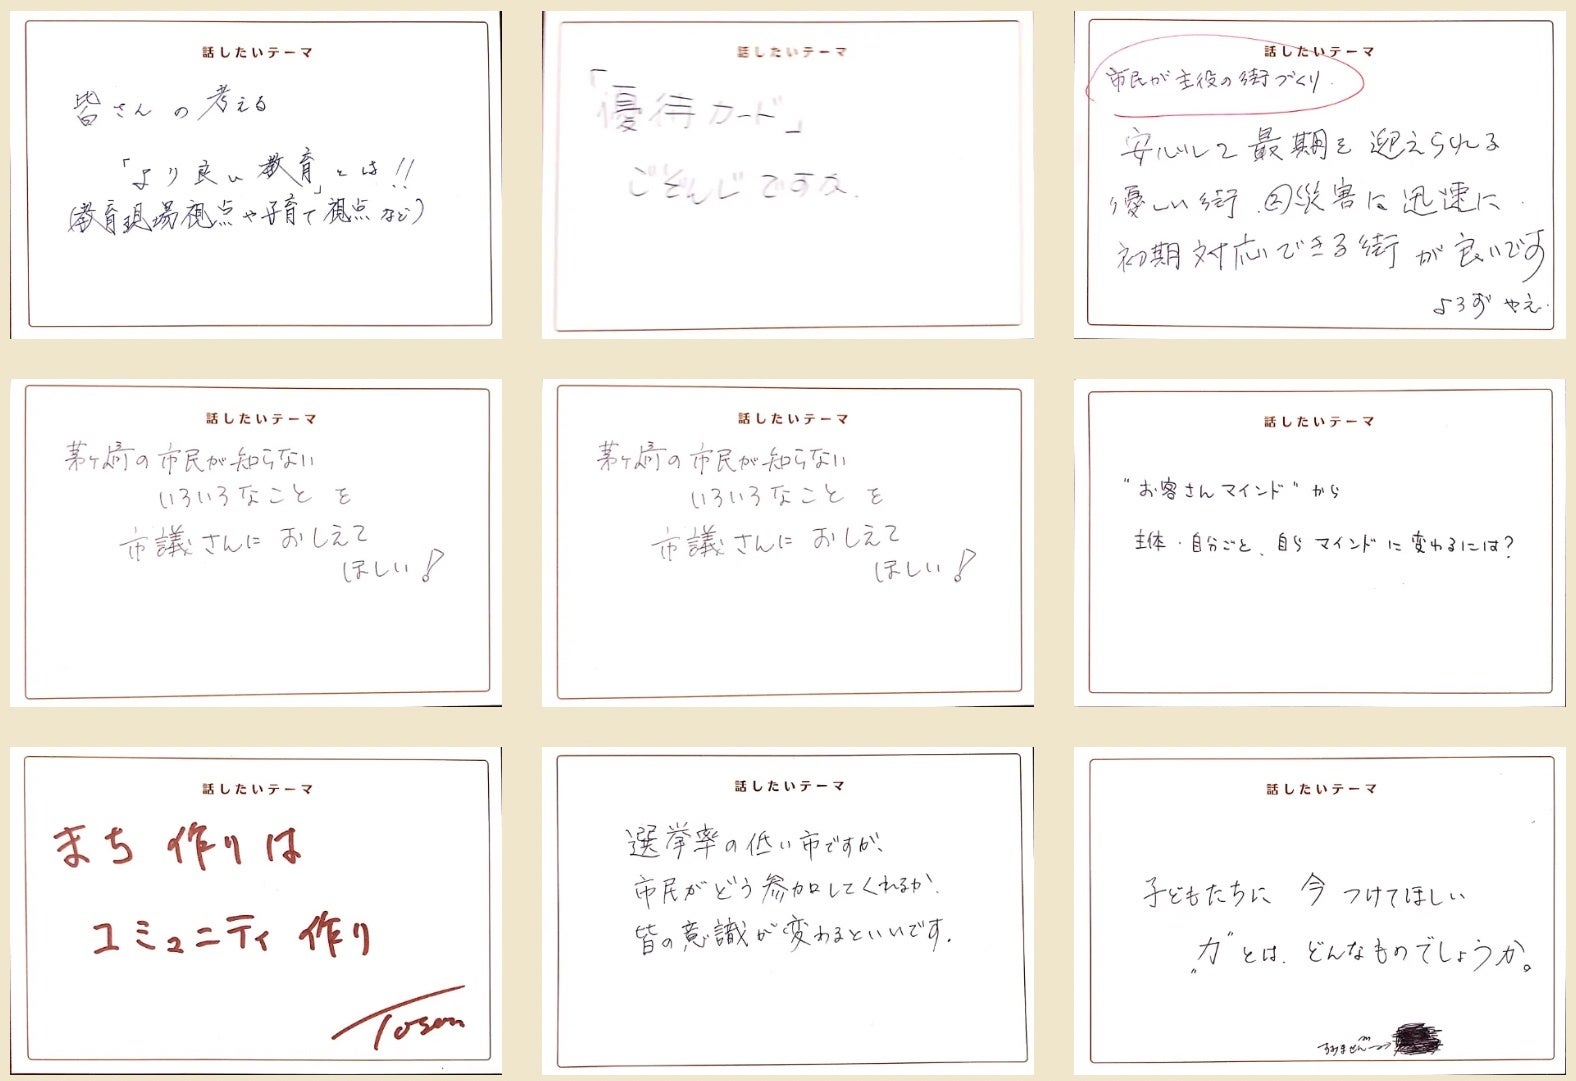 話したいテーマ
皆さんの考える
「より良い教育」とは!!
(教育現場視点や子育て視点など)
話したいテーマ
「優待カード」
ごぞんじですか.
話したいテーマ
市民が主役の街づくり.
安心して最期を迎えられる
優しい街.②災害は迅速に.
初期対応できる街が良いです
よろず やえ.
話したいテーマ
茅ヶ崎の市民が知らない
いろいろなことを
市議さんにおしえて
ほしい!
話したいテーマ
茅ヶ崎の市民が知らない
いろいろなことを
市議さんにおしえて
ほしい!
話したいテーマ
"お客さんマインド"から
主体・自分ごと、自らマインドに変わるには?
話したいテーマ
まち作りは
コミュニティ作り
Tosen
話したいテーマ
選挙率の低い市ですが、
市民がどう参加してくれるか.
皆の意識が変わるといいです.
話したいテーマ
子どもたちに 今 つけてほしい
"力"とは、どんなものでしょうか。
すみません→